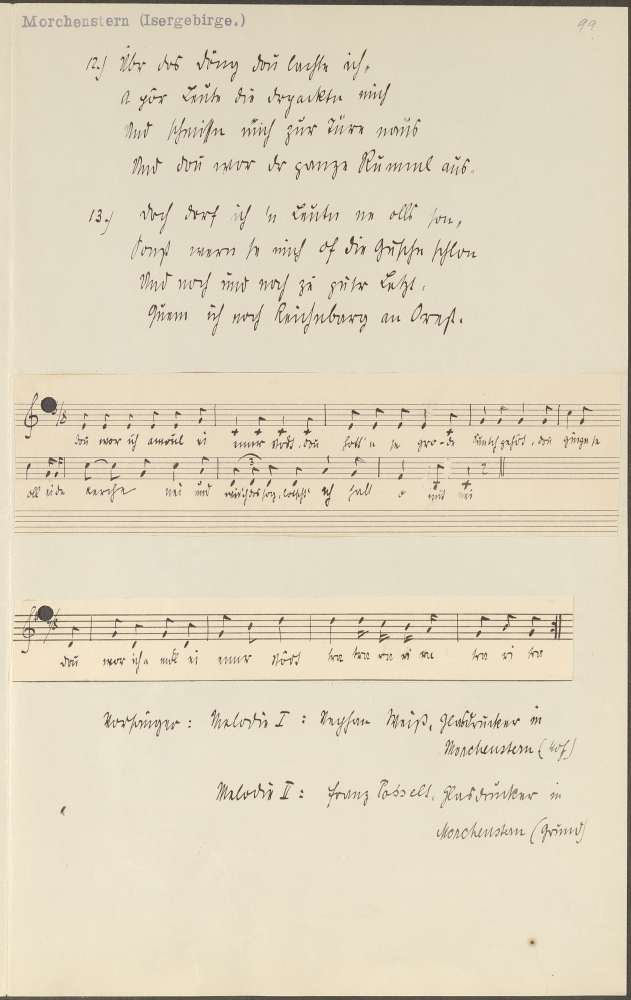 Morchenstern (Isergebirge.)
99.
12.) Übr dos Ding dou lachte ich,
A pôr Leute die drpacktn mich
Und schmissn mich zur Türe naus
Und dou wor dr ganze Rumml aus.
13.) Doch derf ich 'n Leutn ne olls son,
Sonst wern se mich of die Gusche schlon
Und noch und noch zu gutr Letzt,
Quem ich noch Reichnbarg an Orest.
dou wor ich amoul ei enner Stodt, dou hott'n se gro-de gehot, dou gingn se
oll ei de Kerche nei und ich holt o mit nei
dou wor ich a mol ei enner Stodt tra tra ra ri ra tra ri tra
Vorsänger: Melodie I: Stephan Weiß, Glasdrucker in
Morchenstern (Hof)
Melodie II: Franz Posselt, Glasdrucker in
Morchenstern (Grund)